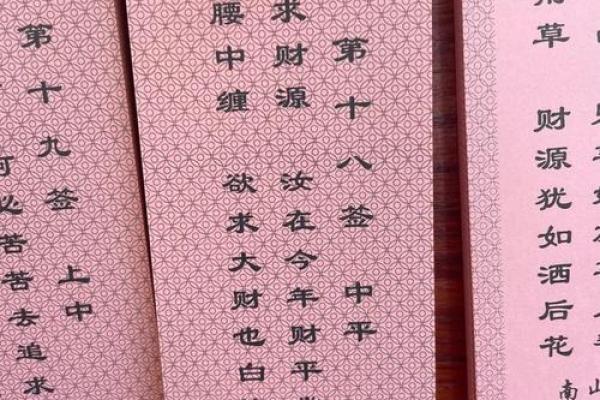 南山
草 财源犹如洒后花
第十八签 中平
求财源 汝在今年财平
腰中缠 欲求大财也白
第十九签 上中
必苦苦去追求